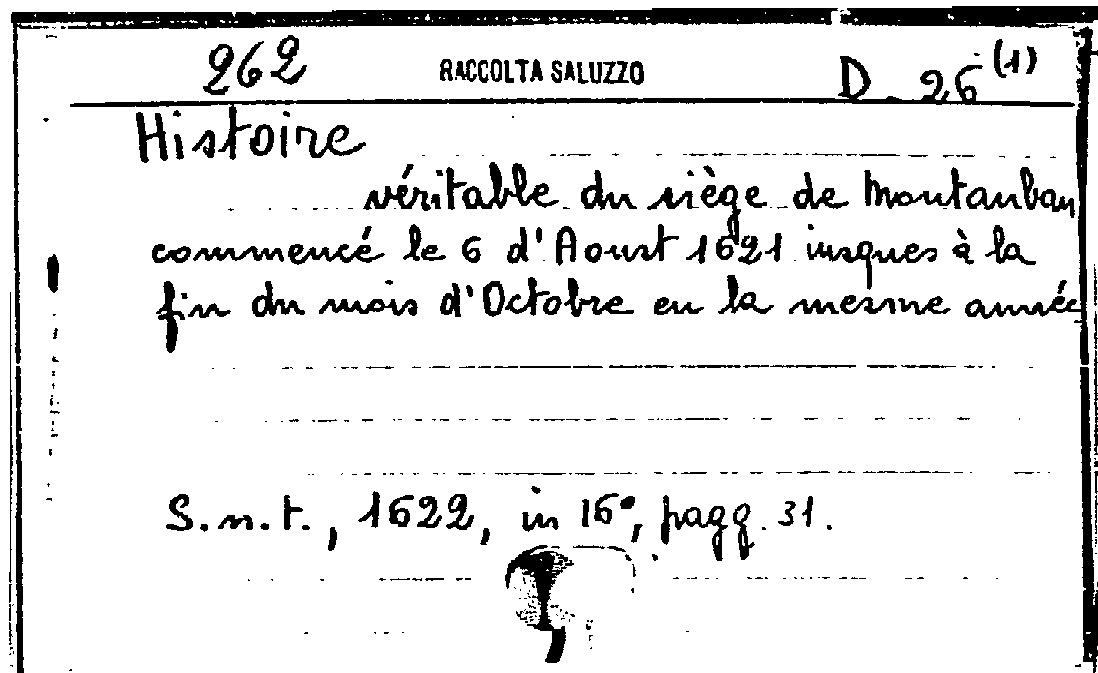 262 RACCOLTA SALUZZO D. 26 (1)
Histoire
véritable du siège de Montauban
commencé le 6 d'Aoust 1621 iusques à la
fin du mois d'Octobre en la mesme année
S.n.t., 1622, in 16°, pagg. 31.